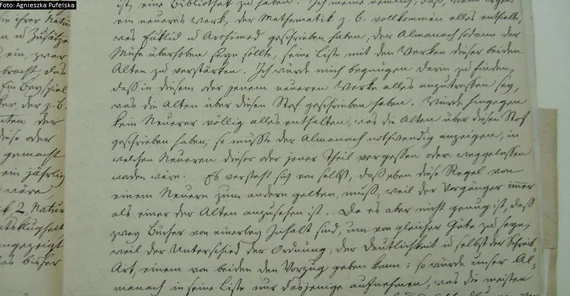 Foto: Agnieszka Pufelska
ist, eine Bibliothek zu haben. Ich meine nemlich, daß, wenn irgend
ein neueres Werk, der Mathematik z. B. vollkommen alles enthielte,
was Euklid und Archimed geschrieben haben, der Almanach sodann der
Mühe überhoben seyn sollte, seine Liste mit den Werken dieser beiden
Alten zu verstärken. Ich würde mich begnügen darin zu finden,
daß in diesem oder jenem neueren Werke alles anzutreffen sey,
was die Alten über diesen Stof geschrieben haben. Würde hingegen
kein Neuerer völlig alles enthalten, was die Alten über diesen Stof
geschrieben haben, so müßte der Almanach nothwendig anzeigen, in
welchen Neueren dieser oder jener Theil vergessen oder weggelassen
worden wäre. Es versteht sich von selbst, daß eben diese Regel von
einem Neuern zum andern gelten muß, weil der Vorgänger immer
als einer der Alten anzusehen ist. Da es aber nicht genug ist, daß
zwey Bücher von einerley Inhalt sind, um von gleicher Güte zu seyn,
weil der Unterschied der Ordnung, der Deutlichkeit und selbst der Schreib-
Art, einem von beiden den Vorzug geben kann; so würde unser Al-
manach in seine Liste nur dasjenige aufnehmen, was die meisten
ihrer Natur
und Zusätze
ein, zwar
gebracht das
Beyspiel
der z. B.
diese oder
gemacht
ein jährlich
wäre
2. Natur
angezeigt
bisher